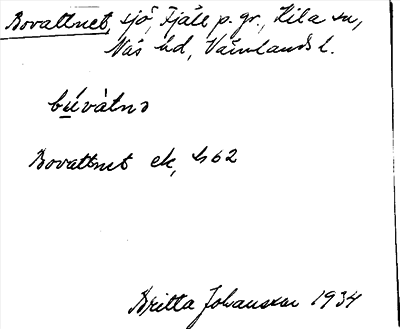 Bovattnet, sjö, Fjäle p. gr., Kila sn,
Näs hd, Värmlands l.
bu̲vàtnə
Bovattnet ek, h62
Britta Johansson 1934